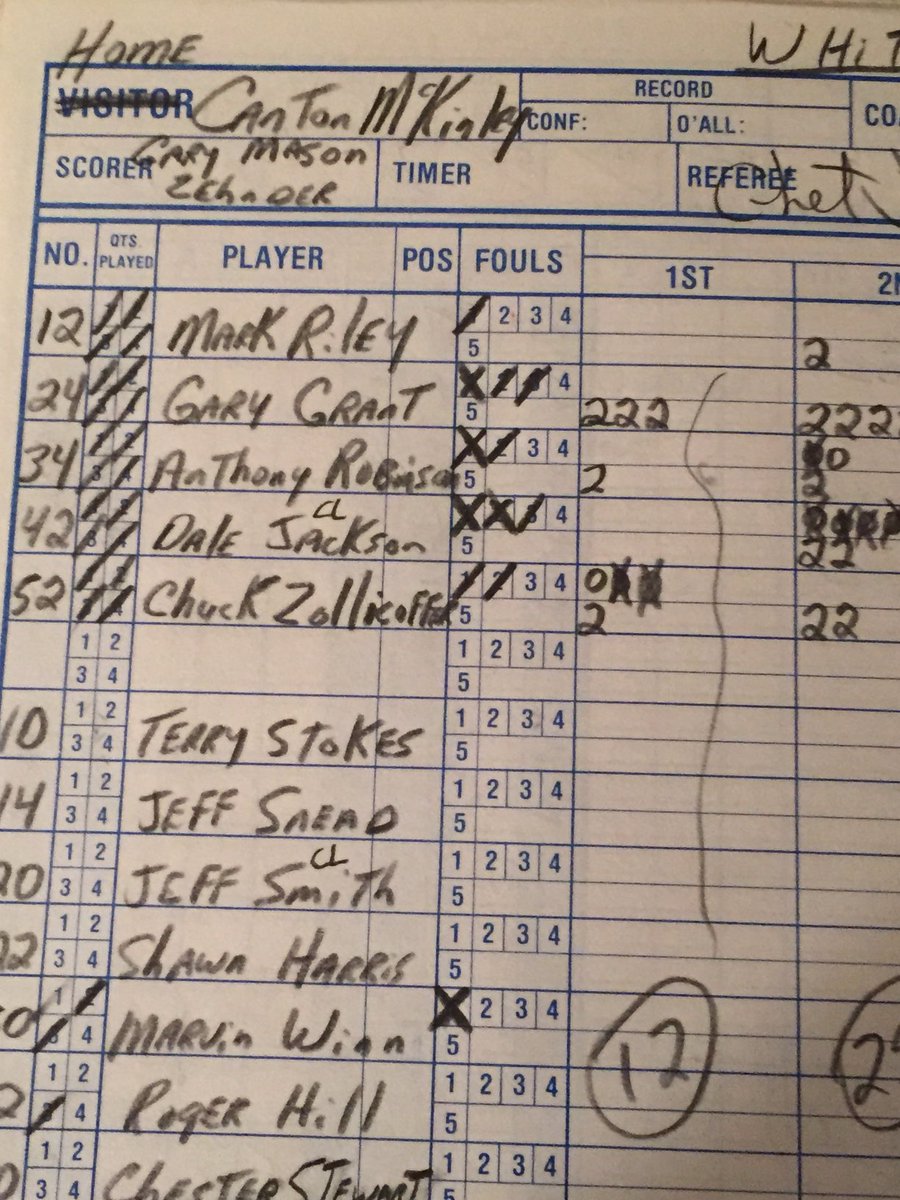 HOME WHIT
VISITOR Canton McKinley RECORD
CONF: O'ALL: CO
SCORER GARY MASON ZEHNDER TIMER REFEREE Chet
NO. QTS. PLAYED PLAYER POS FOULS 1ST 2N
12 MARK RILEY 2 3 4
5 2
24 GARY GRANT 4
5 222 222
34 Anthony Robinson 3 4 0
5 2 2
42 DALE JACKSON CL 4
5 22
52 Chuck Zollicoffer 3 4 0
5 2 22
1 2 1 2 3 4
3 4 5
10 1 2 TERRY STOKES 1 2 3 4
3 4 5
14 1 2 JEFF SNEAD 1 2 3 4
3 4 5
20 1 2 JEFF Smith CL 1 2 3 4
3 4 5
22 1 2 SHAWN HARRIS 1 2 3 4
3 4 5
0 1 MARVIN Winn 2 3 4
4 5 12 2
2 1 2 ROGER Hill 1 2 3 4
4 5
0 1 2 CHESTER STEWART 1 2 3 4
3 4 5